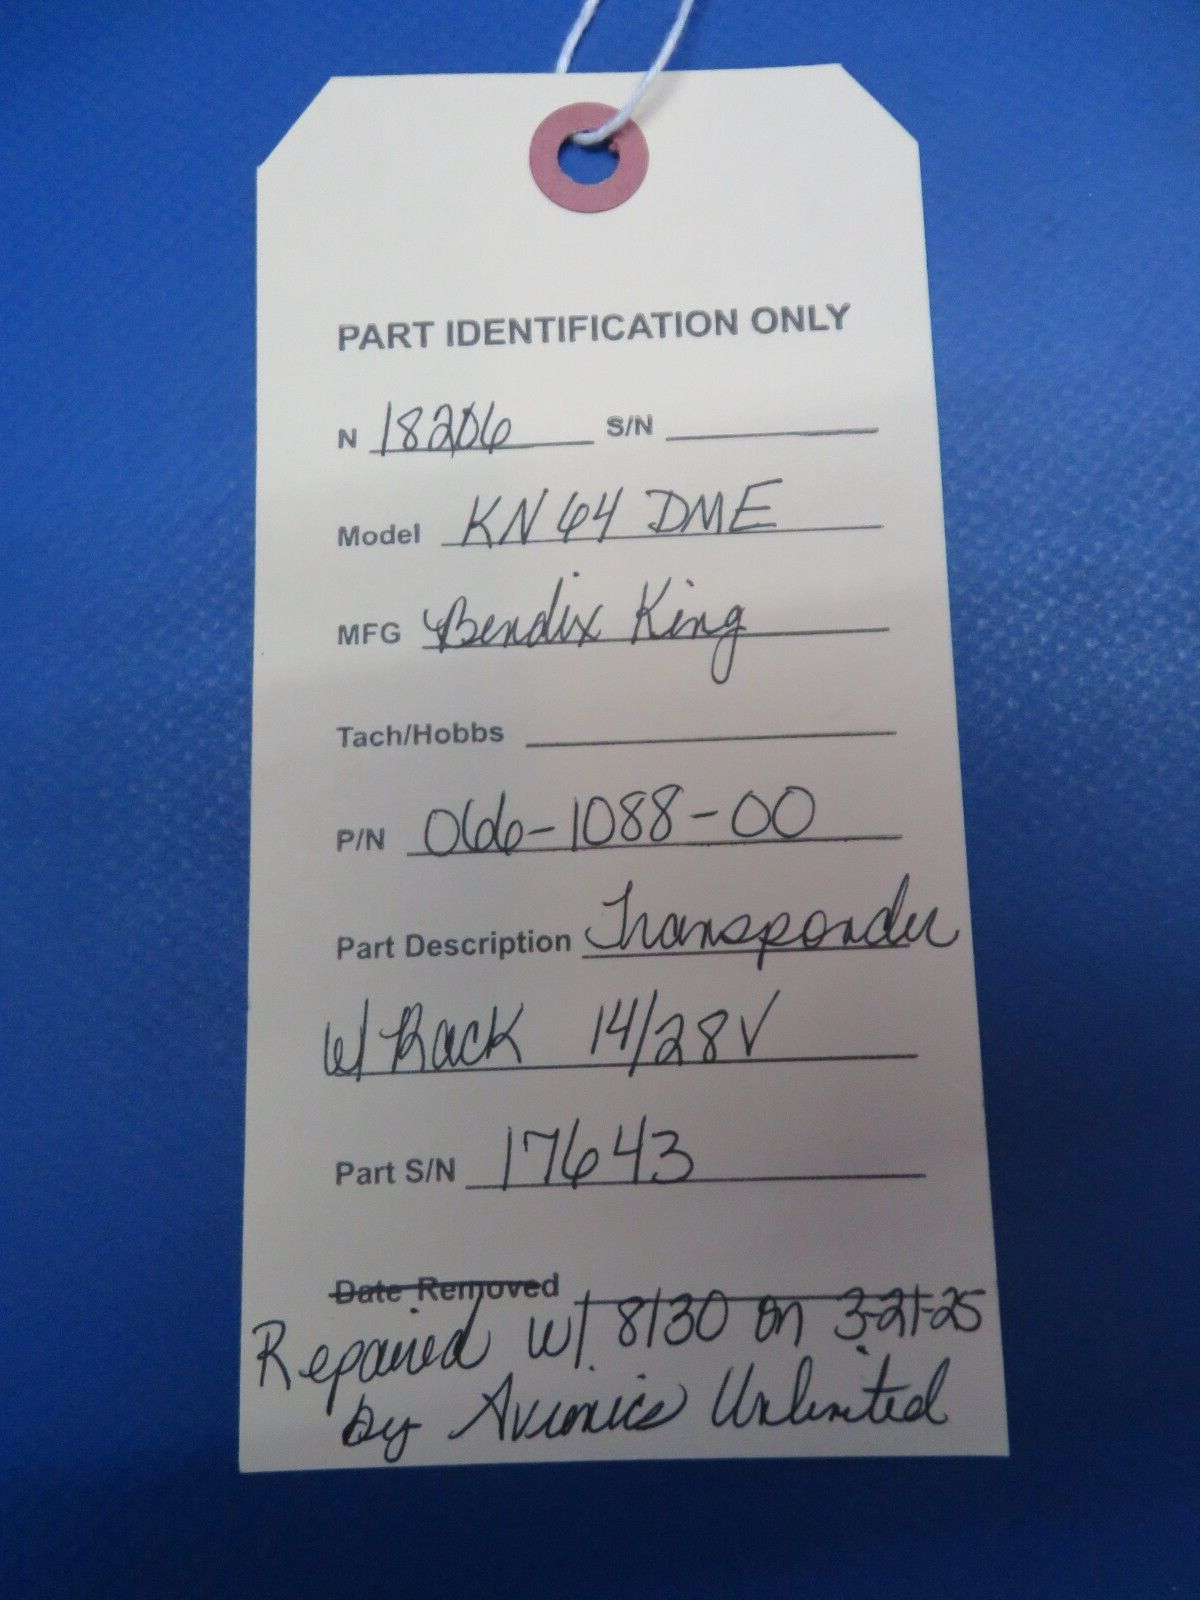 PART IDENTIFICATION ONLY
N 18206 S/N
Model KN 64 DME
MFG Bendix King
Tach/Hobbs
P/N 066-1088-00
Part Description Transponder
W/ Rack 14/28V
Part S/N 17643
Date Removed
Repaired w/ 8130 on 3-21-25
by Avionics Unlimited